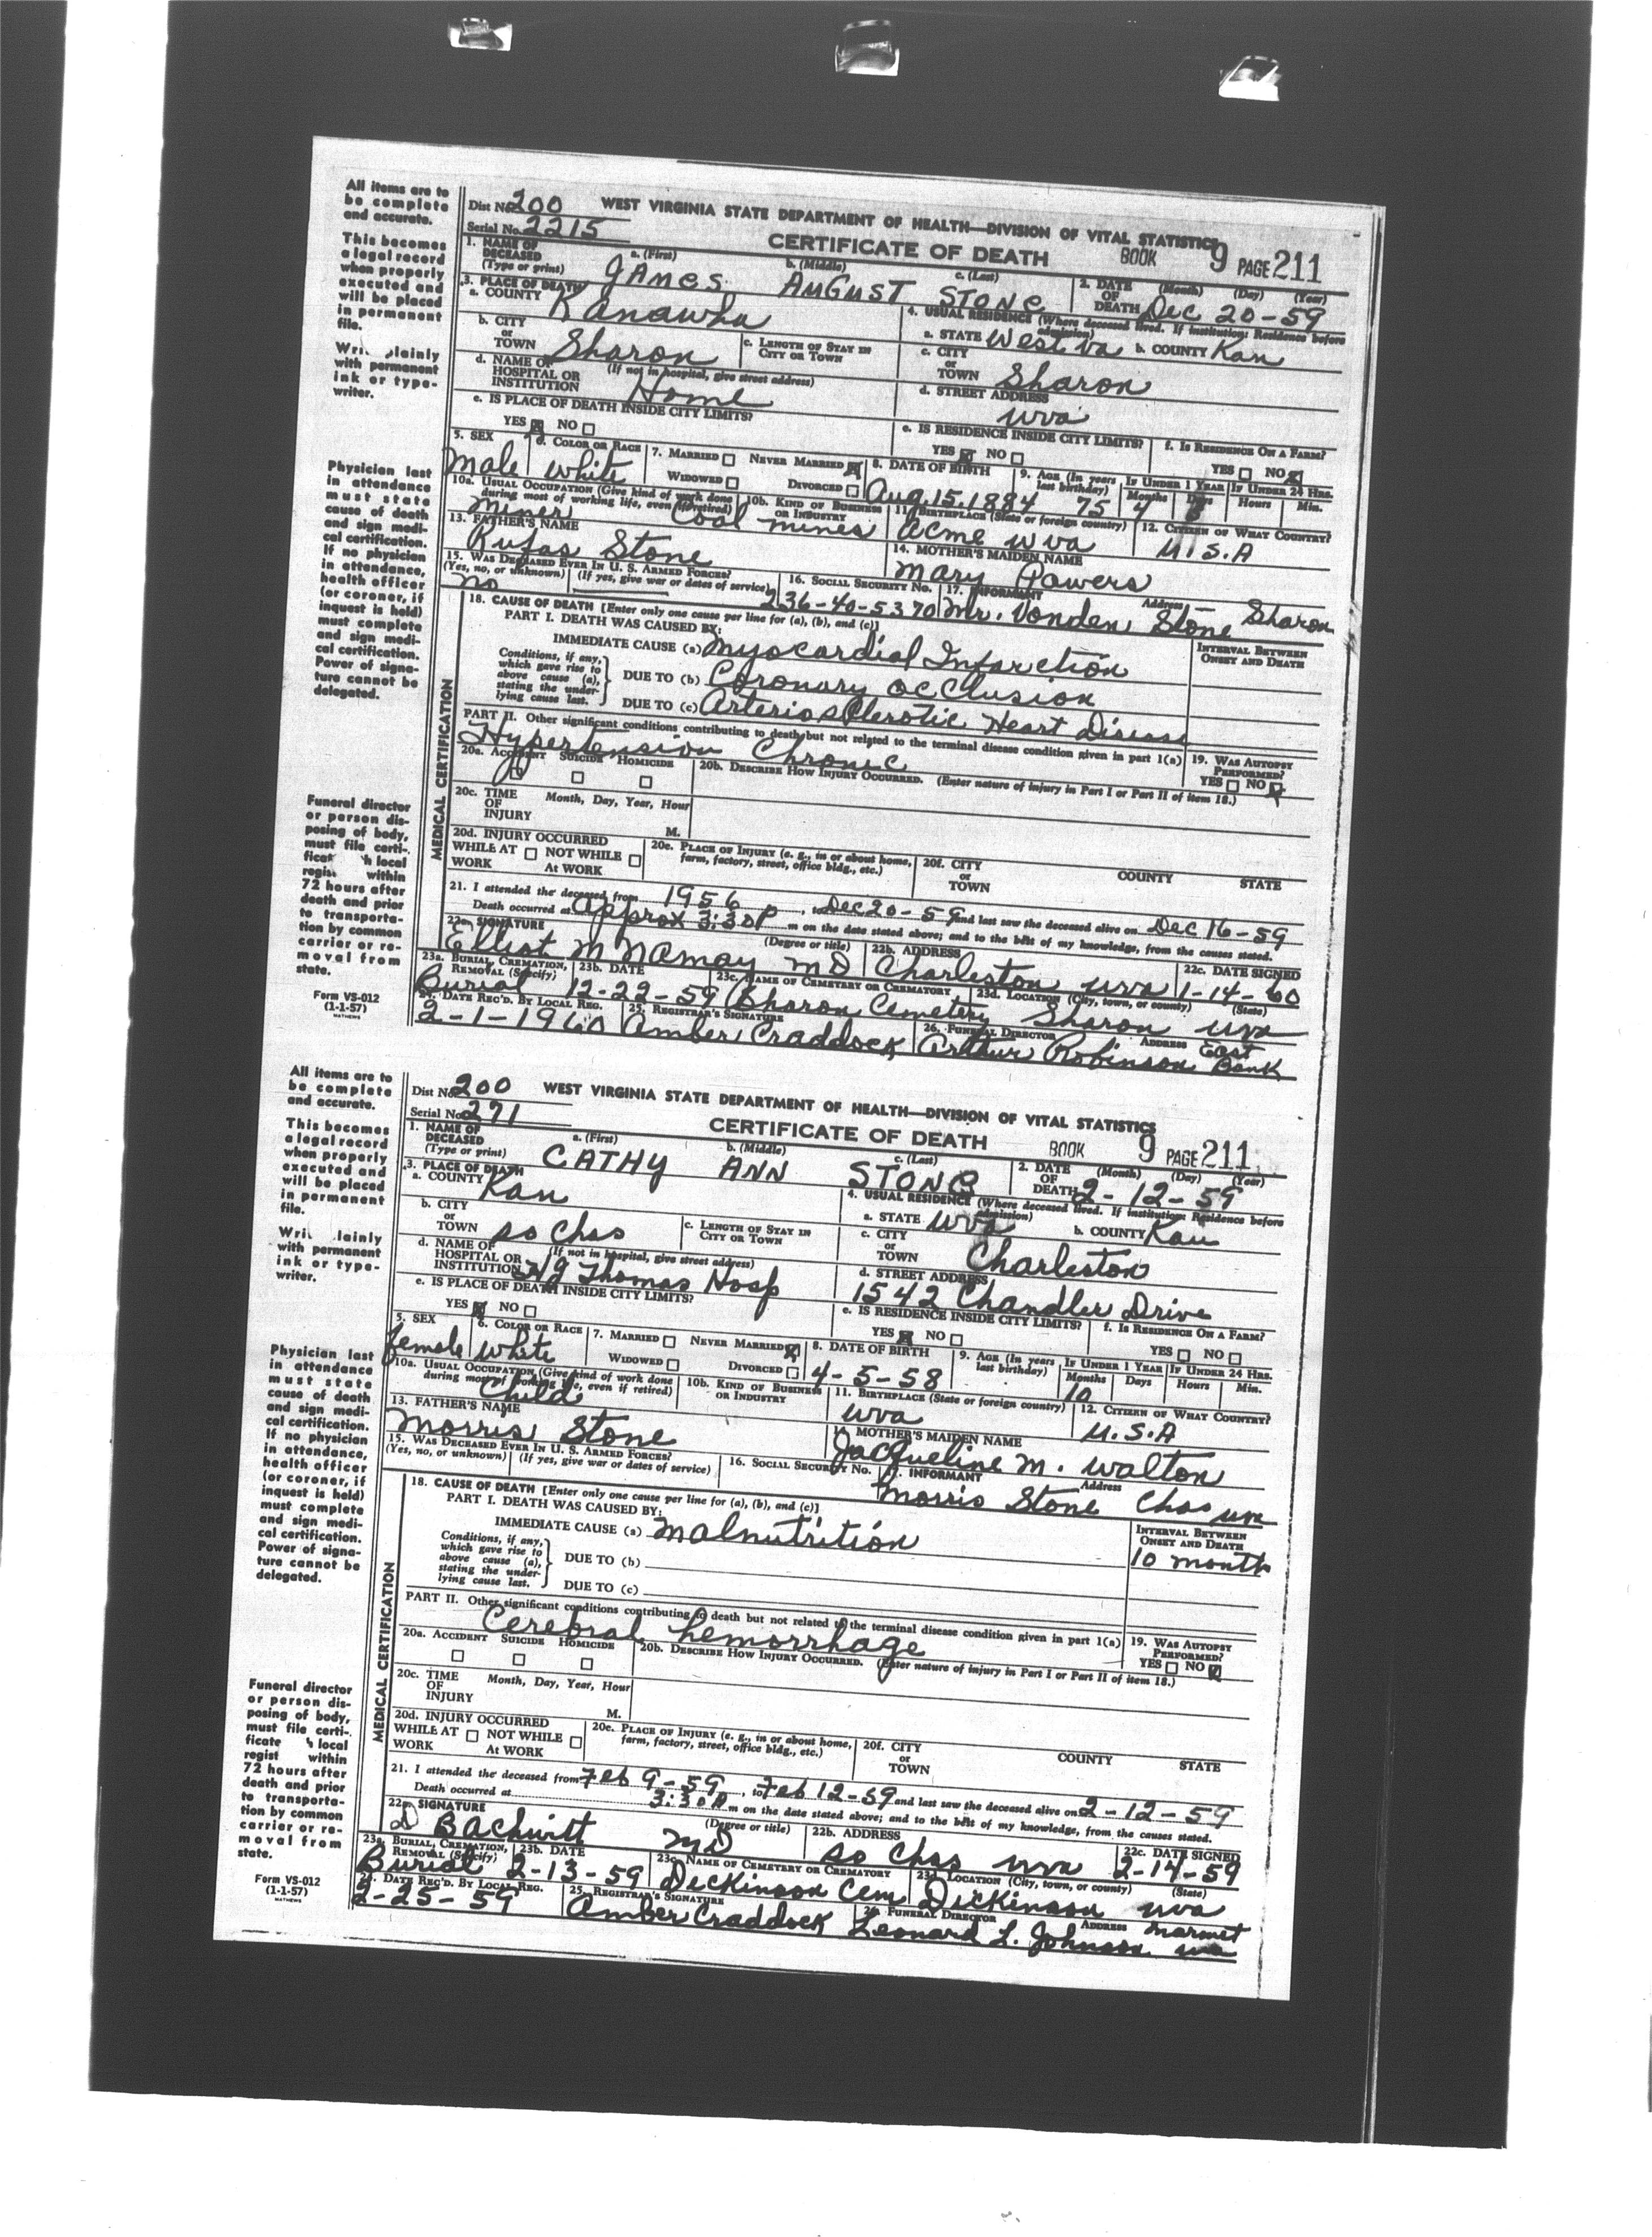 All items are to
be complete
and accurate.
This becomes
a legal record
when properly
executed and
will be placed
in permanent
file.
Wri lainly
with permanent
ink or type-
writer.
Physician last
in attendance
must state
cause of death
and sign medi-
cal certification.
If no physician
in attendance,
health officer
(or coroner, if
inquest is held)
must complete
and sign medi-
cal certification.
Power of signa-
ture cannot be
delegated.
Funeral director
or person dis-
posing of body,
must file certi-
ficat h local
regis within
72 hours after
death and prior
to transporta-
tion by common
carrier or re-
moval from
state.
Form VS-012
(1-1-57)
MATHEWS
Dist No. 200 WEST VIRGINIA STATE DEPARTMENT OF HEALTH—DIVISION OF VITAL STATISTICS
Serial No. 2215 CERTIFICATE OF DEATH BOOK 9 PAGE 211
1. NAME OF DECEASED (Type or print) a. (First) JAMES b. (Middle) AUGUST c. (Last) STONE 2. DATE OF DEATH (Month) (Day) (Year) Dec 20-59
3. PLACE OF DEATH a. COUNTY Kanawha 4. USUAL RESIDENCE (Where deceased lived. If institution: Residence before admission) a. STATE West Va b. COUNTY Kan
b. CITY or TOWN Sharon c. LENGTH OF STAY IN CITY OR TOWN c. CITY or TOWN Sharon
d. NAME OF HOSPITAL OR INSTITUTION (If not in hospital, give street address) Home d. STREET ADDRESS wva
e. IS PLACE OF DEATH INSIDE CITY LIMITS? YES NO e. IS RESIDENCE INSIDE CITY LIMITS? YES NO f. IS RESIDENCE ON A FARM? YES NO
5. SEX male 6. COLOR OR RACE white 7. MARRIED NEVER MARRIED WIDOWED DIVORCED 8. DATE OF BIRTH Aug. 15, 1884 9. AGE (In years last birthday) 75 IF UNDER 1 YEAR Months 4 Days IF UNDER 24 HRS. Hours Min.
10a. USUAL OCCUPATION (Give kind of work done during most of working life, even if retired) Miner 10b. KIND OF BUSINESS OR INDUSTRY Coal mines 11. BIRTHPLACE (State or foreign country) Acme wva 12. CITIZEN OF WHAT COUNTRY? U.S.A
13. FATHER'S NAME Rufas Stone 14. MOTHER'S MAIDEN NAME Mary Powers
15. WAS DECEASED EVER IN U. S. ARMED FORCES? (Yes, no, or unknown) (If yes, give war or dates of service) no 16. SOCIAL SECURITY NO. 236-40-5370 17. INFORMANT Mr. Vonden Stone Address Sharon
MEDICAL CERTIFICATION
18. CAUSE OF DEATH [Enter only one cause per line for (a), (b), and (c)]
PART I. DEATH WAS CAUSED BY: INTERVAL BETWEEN ONSET AND DEATH
IMMEDIATE CAUSE (a) Myocardial Infarction
Conditions, if any, which gave rise to above cause (a), stating the underlying cause last.
DUE TO (b) Coronary Occlusion
DUE TO (c) Arteriosclerotic Heart Disease
PART II. Other significant conditions contributing to death but not related to the terminal disease condition given in part 1(a) Hypertension Chronic 19. WAS AUTOPSY PERFORMED? YES NO
20a. ACCIDENT SUICIDE HOMICIDE 20b. DESCRIBE HOW INJURY OCCURRED. (Enter nature of injury in Part I or Part II of item 18.)
20c. TIME OF INJURY Month, Day, Year, Hour M.
20d. INJURY OCCURRED WHILE AT WORK NOT WHILE AT WORK 20e. PLACE OF INJURY (e. g., in or about home, farm, factory, street, office bldg., etc.) 20f. CITY or TOWN COUNTY STATE
21. I attended the deceased from 1956, to Dec 20-59 and last saw the deceased alive on Dec 16-59
Death occurred at Approx 3:30P m on the date stated above; and to the best of my knowledge, from the causes stated.
22a. SIGNATURE (Degree or title) MD 22b. ADDRESS Charleston wva 22c. DATE SIGNED 1-14-60
23a. BURIAL, CREMATION, REMOVAL (Specify) Burial 23b. DATE 12-22-59 23c. NAME OF CEMETERY OR CREMATORY Sharon Cemetery 23d. LOCATION (City, town, or county) (State) Sharon wva
24. DATE REC'D. BY LOCAL REG. 2-1-1960 25. REGISTRAR'S SIGNATURE Amber Craddock 26. FUNERAL DIRECTOR Arthur Robinson ADDRESS East Bank
All items are to
be complete
and accurate.
This becomes
a legal record
when properly
executed and
will be placed
in permanent
file.
Wri lainly
with permanent
ink or type-
writer.
Physician last
in attendance
must state
cause of death
and sign medi-
cal certification.
If no physician
in attendance,
health officer
(or coroner, if
inquest is held)
must complete
and sign medi-
cal certification.
Power of signa-
ture cannot be
delegated.
Funeral director
or person dis-
posing of body,
must file certi-
ficate local
regist within
72 hours after
death and prior
to transporta-
tion by common
carrier or re-
moval from
state.
Form VS-012
(1-1-57)
MATHEWS
Dist No. 200 WEST VIRGINIA STATE DEPARTMENT OF HEALTH—DIVISION OF VITAL STATISTICS
Serial No. 271 CERTIFICATE OF DEATH BOOK 9 PAGE 211
1. NAME OF DECEASED (Type or print) a. (First) CATHY b. (Middle) ANN c. (Last) STONE 2. DATE OF DEATH (Month) (Day) (Year) 2-12-59
3. PLACE OF DEATH a. COUNTY Kan 4. USUAL RESIDENCE (Where deceased lived. If institution: Residence before admission) a. STATE wva b. COUNTY Kan
b. CITY or TOWN so Chas c. LENGTH OF STAY IN CITY OR TOWN c. CITY or TOWN Charleston
d. NAME OF HOSPITAL OR INSTITUTION (If not in hospital, give street address) Thomas Hosp d. STREET ADDRESS 1542 Chandler Drive
e. IS PLACE OF DEATH INSIDE CITY LIMITS? YES NO e. IS RESIDENCE INSIDE CITY LIMITS? YES NO f. IS RESIDENCE ON A FARM? YES NO
5. SEX female 6. COLOR OR RACE white 7. MARRIED NEVER MARRIED WIDOWED DIVORCED 8. DATE OF BIRTH 4-5-58 9. AGE (In years last birthday) IF UNDER 1 YEAR Months 10 Days IF UNDER 24 HRS. Hours Min.
10a. USUAL OCCUPATION (Give kind of work done during most of working life, even if retired) Child 10b. KIND OF BUSINESS OR INDUSTRY 11. BIRTHPLACE (State or foreign country) wva 12. CITIZEN OF WHAT COUNTRY? U.S.A
13. FATHER'S NAME Morris Stone 14. MOTHER'S MAIDEN NAME Jacqueline M. Walton
15. WAS DECEASED EVER IN U. S. ARMED FORCES? (Yes, no, or unknown) (If yes, give war or dates of service) 16. SOCIAL SECURITY NO. 17. INFORMANT Morris Stone Address Chas wva
MEDICAL CERTIFICATION
18. CAUSE OF DEATH [Enter only one cause per line for (a), (b), and (c)]
PART I. DEATH WAS CAUSED BY: INTERVAL BETWEEN ONSET AND DEATH
IMMEDIATE CAUSE (a) Malnutrition 10 month
Conditions, if any, which gave rise to above cause (a), stating the underlying cause last.
DUE TO (b)
DUE TO (c)
PART II. Other significant conditions contributing to death but not related to the terminal disease condition given in part 1(a) Cerebral hemorrhage 19. WAS AUTOPSY PERFORMED? YES NO
20a. ACCIDENT SUICIDE HOMICIDE 20b. DESCRIBE HOW INJURY OCCURRED. (Enter nature of injury in Part I or Part II of item 18.)
20c. TIME OF INJURY Month, Day, Year, Hour M.
20d. INJURY OCCURRED WHILE AT WORK NOT WHILE AT WORK 20e. PLACE OF INJURY (e. g., in or about home, farm, factory, street, office bldg., etc.) 20f. CITY or TOWN COUNTY STATE
21. I attended the deceased from Feb 9-59, to Feb 12-59 and last saw the deceased alive on 2-12-59
Death occurred at 3:30P m on the date stated above; and to the best of my knowledge, from the causes stated.
22a. SIGNATURE (Degree or title) MD 22b. ADDRESS so Chas wva 22c. DATE SIGNED 2-14-59
23a. BURIAL, CREMATION, REMOVAL (Specify) Burial 23b. DATE 2-13-59 23c. NAME OF CEMETERY OR CREMATORY Dickinson Cem 23d. LOCATION (City, town, or county) (State) Dickinson wva
24. DATE REC'D. BY LOCAL REG. 2-25-59 25. REGISTRAR'S SIGNATURE Amber Craddock 26. FUNERAL DIRECTOR Leonard L. Johnson ADDRESS Marmet wva